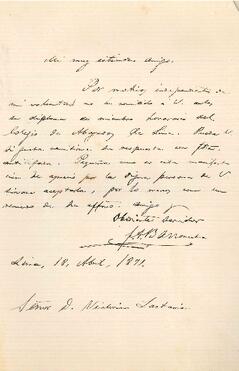 Mi muy estimado amigo.
Por motivos independientes de
mi voluntad no he remitido a V. antes
su diploma de miembro honorario del
Colegio de Abogados de Lima.
de respuesta con
Pequeña como es esta manifesta
cion de aprecio por la digna persona de V
aceptarla, por lo menos como un
recuerdo de su affmo. amigo y
Obediente servidor
J. A. Barrenechea
Lima, 18, Abril, 1871.
Señor D. Victorino Lastarria.